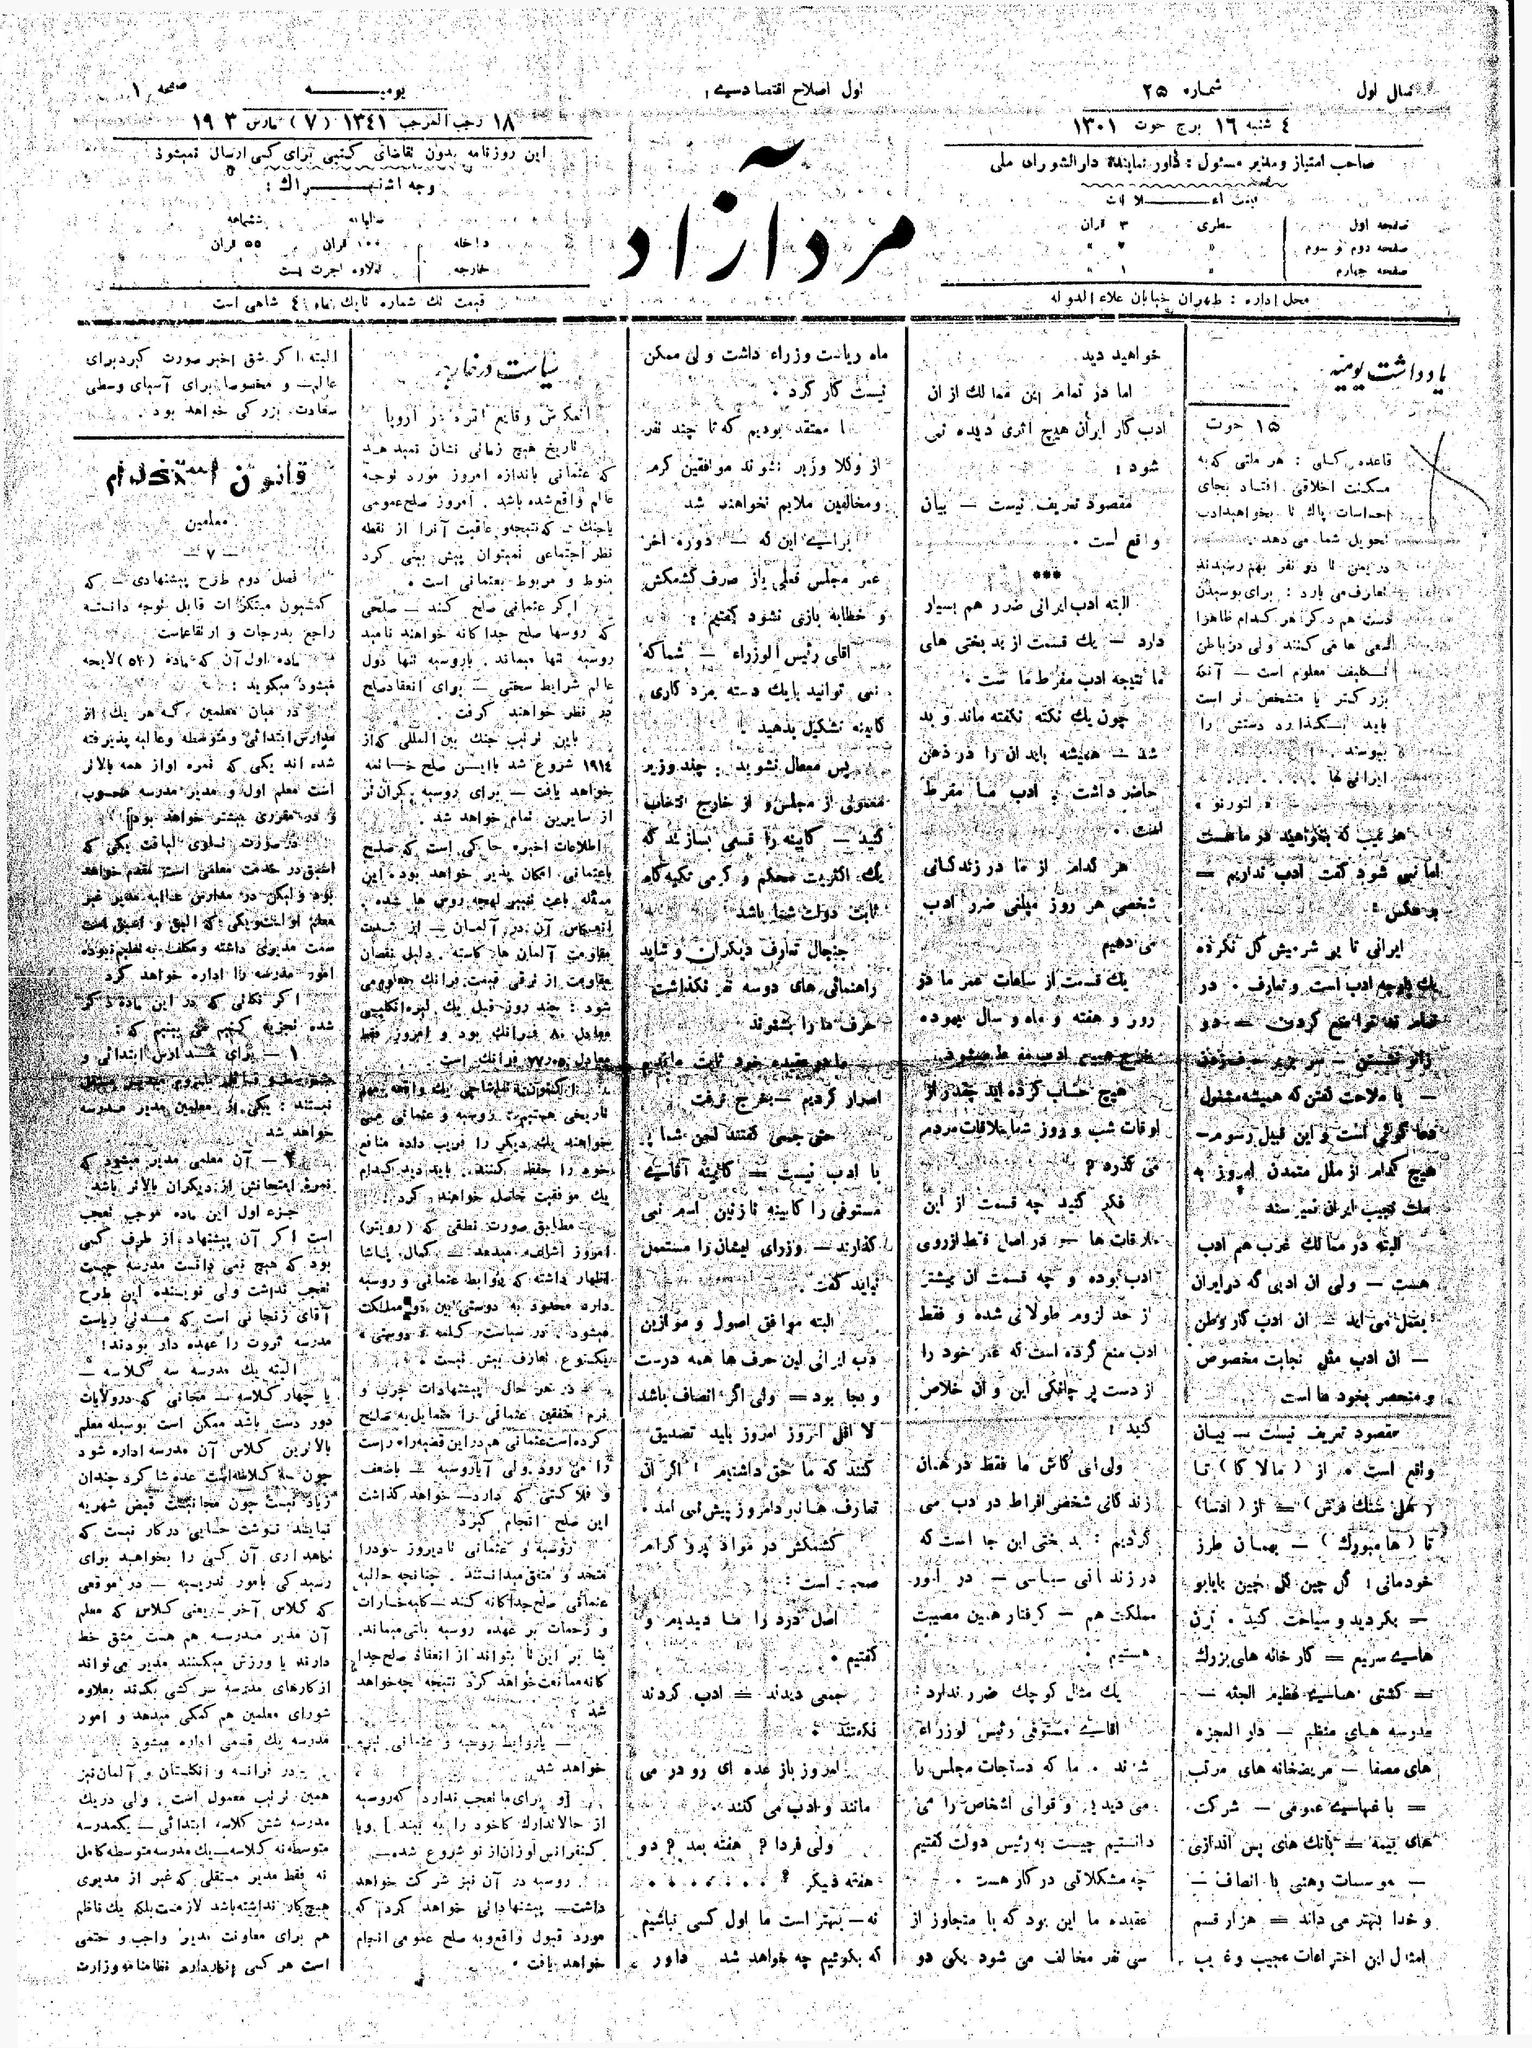 سال اول
شماره ۲۵
اول اصلاح اقتصادیست
یومیه
صفحه ۱
٤ شنبه ۱٦ برج حوت ۱۳۰۱
۱۸ رجب المرجب ۱۳٤۱ (۷) مارس
صاحب امتیاز و مدیر مسئول : داور نماینده دارالشورای ملی
صفحه اول سطری ۳ قران
صفحه دوم و سوم » ۲ »
صفحه چهارم » ۱ »
محل اداره : طهران خیابان علاء الدوله
مرد آزاد
این روزنامه بدون تقاضای کتبی برای کسی ارسال نمیشود
وجه اشتراك :
سالیانه ششماهه
داخله ۱۰۰ قران ۵۵ قران
خارجه بعلاوه اجرت پست
قیمت تك شماره شاهی است
یادداشت یومیه
۱۵ حوت
قاعده کلی : هر ملتی که به
مسکنت اخلاقی افتاد بجای
احساسات پاك تا بخواهید ادب
تحویل شما می دهد .
در یمن تا دو نفر بهم رسیدند
تعارف می بارد : برای بوسیدن
دست هم دیگر هر کدام ظاهرا
سعی ها می کنند ولی در باطن
تکلیف معلوم است — آنکه
بزرگتر یا متشخص تر است
باید بگذارد دستش را
ببوسند .
ایرانی ها
هر عیب که بخواهید در ما هست
اما نمی شود گفت ادب نداریم —
بر عکس :
ایرانی تا پو شرمیش گل نکرده
یك پارچه ادب است و تعارف . در
تمام تواضع کردن — دو
زانو نشستن — سر بزیر
— با ملاحت گفتن که همیشه مشغول
دعا گوئی است و این قبیل رسوم —
هیچ کدام از ملل متمدن امروز به
ملت نجیب ایران نمیرسند
البته در ممالك غرب هم ادب
هست — ولی ان ادبی که در ایران
بعمل می اید — ان ادب کار وطن
— ان ادب مثل نجابت مخصوص
و منحصر بخود ها است
مقصود تعریف نیست — بیان
واقع است . از ( مالاکا ) تا
تا ( هامبورك ) — بهمان طرز
خودمانی : گل چین گل چین بایابو
— بگردید و سیاحت کنید . ترن
های سریع = کارخانه های بزرك
= کشتی های عظیم الجثه —
مدرسه های منظم — دار العجزه
های مصفا — مریضخانه های مرتب
= باغهای عمومی — شرکت
های بیمه = بانك های پس اندازی
— موسسات رهنی با انصاف —
و خدا بهتر می داند = هزار قسم
امثال این اختراعات عجیب و غریب
خواهید دید.
اما در تمام این ممالك از ان
ادب کار ایران هیچ اثری دیده نمی
شود !
مقصود تعریف نیست — بیان
واقع است .
***
البته ادب ایرانی ضرر هم بسیار
دارد — یك قسمت از بد بختی های
ما نتیجه ادب مفرط ما است .
چون یك نکته نگفته ماند و بد
شد — همیشه باید ان را در ذهن
حاضر داشت : ادب ما مفرط
است .
هر کدام از ما در زندگانی
شخصی هر روز مبلغی ضرر ادب
می دهیم
یك قسمت از ساعات عمر ما در
روز و هفته و ماه و سال بیهوده
خرج همین ادب مفرط میشود.
هیچ حساب کرده اید چقدر از
اوقات شب و روز شما بملاقات مردم
می گذرد ؟
فکر کنید چه قسمت از این
ملاقات ها — در اصل فقط از روی
ادب بوده و چه قسمت ان بیشتر
از حد لزوم طولانی شده و فقط
ادب منع کرده است که عمر خود را
از دست پر چانگی این و ان خلاص
کنید !
ولی ای کاش ما فقط در همان
زندگانی شخصی افراط در ادب می
کردیم : بد بختی این جا است که
در زندگانی سیاسی — در امور
مملکت هم — گرفتار همین مصیبت
هستیم .
یك مثال کوچك ضرر ندارد :
اقای مستوفی رئیس الوزراء
شدند . ما که دستجات مجلس را
می دیدیم و قوای اشخاص را می
دانستیم چیست به رئیس دولت گفتیم
چه مشکلاتی در کار هست .
عقیده ما این بود که با متجاوز از
سی نفر مخالف می شود یکی دو
ماه ریاست وزراء داشت ولی ممکن
نیست کار کرد .
ما معتقد بودیم که تا چند نفر
از وکلا وزیر نشوند موافقین گرم
و مخالفین ملایم نخواهند شد
برای این که — دوره اخر
عمر مجلس فعلی باز صرف کشمکش
و خطابه بازی نشود گفتیم :
اقای رئیس الوزراء — شما که
نمی توانید با یك دسته مرد کاری
کابینه تشکیل بدهید !
پس معطل نشوید . چند وزیر
معمولی از مجلس و از خارج انتخاب
کنید — کابینه را قسمی بسازید که
یك اکثریت محکم و گرمی تکیه گاه
ثابت دولت شما باشد
جنجال تعارف دیگران و شاید
راهنمائی های دوسه نفر نگذاشت
حرف ما را بشنوند
ما در عقیده خود ثابت ماندیم
اصرار کردیم — بخرج نرفت
حتی جمعی گفتند لحن شما پر
با ادب نیست — کابینه آقای
مستوفی را کابینه نازنین اسم نمی
گذارند — وزرای ایشان را مستعمل
نباید گفت .
البته موافق اصول و موازین
ادب ایرانی این حرف ها همه درست
و بجا بود = ولی اگر انصاف باشد
لا اقل امروز باید تصدیق
کنند که ما حق داشتیم ! اگر ان
تعارف ها نبود امروز پیش نمی امد .
کشمکش در مواد پروگرام
صحبت است :
اصل درد را ما دیدیم و
گفتیم .
جمعی دیدند = ادب کردند
نگفتند .
امروز باز عده ای رو در می
مانند و ادب می کنند .
ولی فردا ؟ هفته بعد ؟ دو
هفته دیگر ؟ . . . . . . .
نه — بهتر است ما اول کسی نباشیم
که بگوئیم چه خواهد شد . داور
سیاست در خارجه
انعکاس وقایع انقره در اروپا
تاریخ هیچ زمانی نشان نمیدهد
که عثمانی باندازه امروز مورد توجه
عالم واقع شده باشد . امروز صلح عمومی
یا جنك — که نتیجه و عاقبت آنرا از نقطه
نظر اجتماعی نمیتوان پیش بینی کرد
منوط و مربوط بعثمانی است .
اگر عثمانی صلح کند — صلحی
که روسها صلح جداگانه خواهند نامید
روسیه تنها میماند . با روسیه تنها دول
عالم شرایط سختی — برای انعقاد صلح
در نظر خواهند گرفت .
باین ترتیب جنك بین المللی که از
۱۹۱٤ شروع شد با این صلح خاتمه
خواهد یافت — برای روسیه گران تر
از سایرین تمام خواهد شد .
اطلاعات اخیره حاکی است که صلح
با عثمانی امکان پذیر خواهد بود . این
مسئله باعث تغییر لهجه روس ها شده .
انعکاس آن در آلمان — از شدت
مقاومت آلمان ها کاسته . دلیل نقصان
مقاومت از ترقی قیمت فرانك معلوم می
شود : چند روز قبل یك لیره انگلیسی
معادل ۸۰ فرانك بود و امروز فقط
معادل ۷۷٫۰۵ فرانك است .
اکنون تماشاچی یك واقعه مهم
تاریخی هستیم : روسیه و عثمانی می
خواهند یك دیگر را فریب داده منافع
خود را حفظ کنند . باید دید کدام
یك موفقیت حاصل خواهند کرد .
مطابق صورت نطقی که ( رویتر )
امروز اشاعه میدهد — کمال پاشا
اظهار داشته که روابط عثمانی و روسیه
دارد محدود به دوستی بین دو مملکت
میشود . در سیاست کلمه « دوستی »
یکنوع تعارف بیش نیست .
در هر حال پیشنهادات چرب و
نرم متفقین عثمانی را متمایل به صلح
کرده است عثمانی هم در این قضیه راه راست
را می رود ولی آیا روسیه — با ضعف
و فلاکتی که دارد — خواهد گذاشت
این صلح انجام گیرد
روسیه و عثمانی تا دیروز خود را
متحد و متفق میدانستند . چنانچه حالیه
عثمانی صلح جداگانه کند — کلیه خسارات
و زحمات بر عهده روسیه باقی میماند .
بنا بر این تا بتواند از انعقاد صلح جدا
گانه ممانعت خواهد کرد نتیجه چه خواهد
شد ؟
— یا روابط روسیه و عثمانی تیره
خواهد شد
[ و برای ما تعجب ندارد که روسیه
از حالا تدارك کار خود را به بیند ] و یا
کنفرانس لوزان از نو شروع شده —
روسیه در آن نیز شرکت خواهد
داشت — پیشنهاداتی خواهد کرد که
مورد قبول واقع و به صلح عمومی انجام
خواهد یافت .
البته اگر شق اخیر صورت گیرد برای
عالمیت و مخصوصا برای آسیای وسطی
سعادت بزرگی خواهد بود .
قانون استخدام
معلمین
— ۷ —
فصل دوم طرح پیشنهادی — که
کمسیون مبتکرات قابل توجه دانسته
راجع بدرجات و ارتقاعاست
ماده اول آن که ماده لایحه
میشود میگوید :
در میان معلمین که هر یك از
مدارس ابتدائی و متوسطه و عالیه پذیرفته
شده اند یکی که نمره او از همه بالاتر
است معلم اول و مدیر مدرسه محسوب
و در مقرری بیشتر خواهد بود .
در صورت تساوی لیاقت یکی که
اسبق در خدمت معلمی است مقدم خواهد
بود ولیکن در مدارس عالیه مدیر غیر
معلم اول است و یکی که الیق و اسبق است
سمت مدیری داشته و مکلف به تعلیم نبوده
امور مدرسه را اداره خواهد کرد
اگر نکاتی که در این ماده ذکر
شده تجزیه کنیم می بینیم که :
۱ — برای مدارس ابتدائی و
نیستند : یکی از معلمین مدیر مدرسه
خواهد شد
۲ — آن معلمی مدیر میشود که
نمره امتحانش از دیگران بالاتر باشد
جزء اول این ماده موجب تعجب
است اگر آن پیشنهاد از طرف کسی
بود که هیچ نمی دانست مدرسه چیست
تعجب نداشت ولی نویسنده این طرح
آقای زنجانی است که مدتی ریاست
مدرسه ثروت را عهده دار بودند !
البته یك مدرسه سه کلاسه —
یا چهار کلاسه — مجانی که در ولایات
دور دست باشد ممکن است بوسیله معلم
بالاترین کلاس آن مدرسه اداره شود
چون سه کلاسه است عده شاگرد چندان
زیاد نیست چون مجانیست قبض شهریه
نمایند نوشت حسابی در کار نیست که
نگاهداری آن کسی را بخواهید برای
رسیدگی بامور تدریسیه — در موقعی
که کلاس آخر — یعنی کلاس که معلم
آن مدیر مدرسه هم هست مشق خط
دارند یا ورزش میکنند مدیر می تواند
از کارهای مدرسه سرکشی بکند بعلاوه
شورای معلمین هم کمکی میدهد و امور
مدرسه یك قسمی اداره میشود
در فرانسه و انگلستان و آلمان نیز
همین ترتیب معمول است . ولی در یك
مدرسه شش کلاسه ابتدائی — یکمدرسه
متوسطه نه کلاسه — یك مدرسه متوسطه کامل
نه فقط مدیر مستقلی که غیر از مدیری
هیچ کار نداشته باشد لازمست بلکه یك ناظم
هم برای معاونت مدیر واجب و حتمی
است هر کسی نظامنامه وزارت